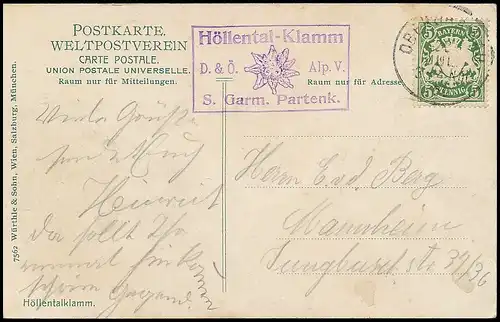 POSTKARTE.
WELTPOSTVEREIN
CARTE POSTALE.
UNION POSTALE UNIVERSELLE.
Raum nur für Mitteilungen.
Höllental-Klamm
D. & Ö. Alp. V.
S. Garm. Partenk.
Raum nur für Adresse.
BAYERN
5 5
5 PFENNIG 5
Viele Grüße
Heinrich
Da sollt Ihr
Gegend.
Herrn E. v. d. Berg
Mannheim
34/36
7562 Würthle & Sohn, Wien, Salzburg, München.
Höllentalklamm.